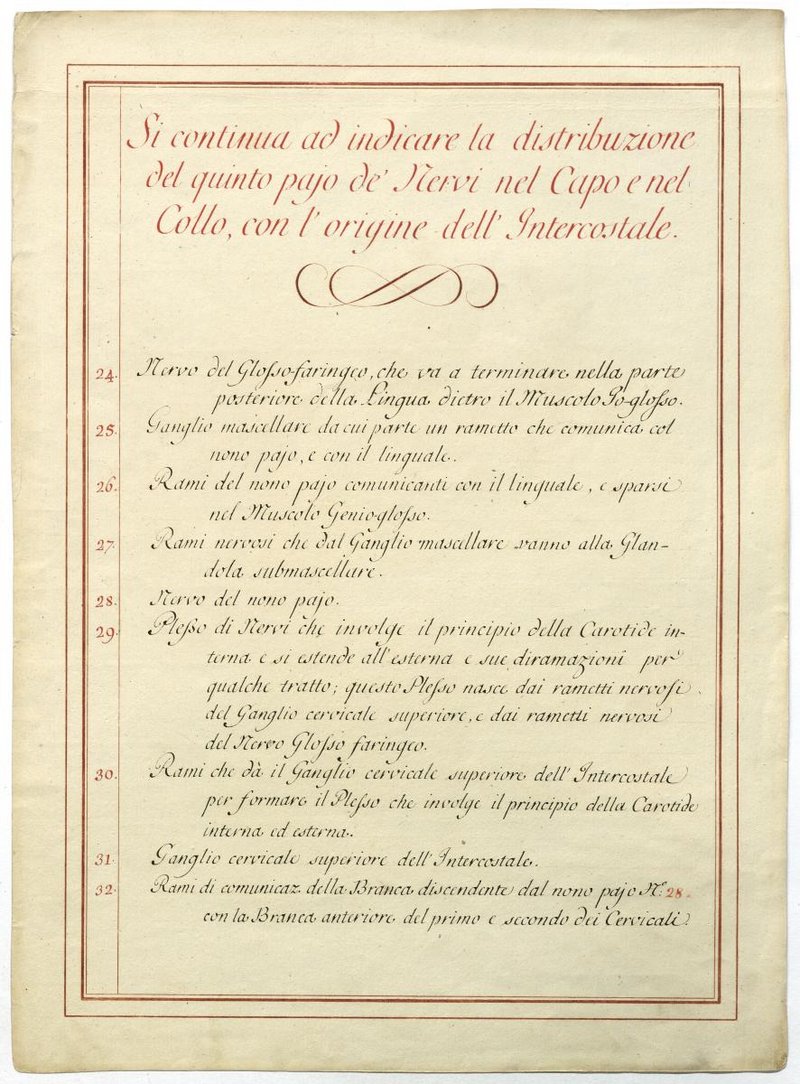 Si continua ad indicare la distribuzione
del quinto pajo de' Nervi nel Capo e nel
Collo, con l' origine dell' Intercostale.
24. Nervo del Glosso-faringeo, che va a terminare nella parte
posteriore della Lingua dietro il Muscolo Io-glosso.
25. Ganglio mascellare da cui parte un rametto che comunica col
nono pajo, e con il linguale.
26. Rami del nono pajo comunicanti con il linguale, e sparsi
nel Muscolo Genio-glosso.
27. Rami nervosi che dal Ganglio mascellare vanno alla Glan-
dola submascellare.
28. Nervo del nono pajo.
29. Plesso di Nervi che involge il principio della Carotide in-
terna e si estende all' esterna e sue diramazioni per
qualche tratto; questo Plesso nasce dai rametti nervosi
del Ganglio cervicale superiore, e dai rametti nervosi
del Nervo Glosso faringeo.
30. Rami che dà il Ganglio cervicale superiore dell' Intercostale
per formare il Plesso che involge il principio della Carotide
interna ed esterna.
31. Ganglio cervicale superiore dell' Intercostale.
32. Rami di comunicaz. della Branca discendente dal nono pajo N.° 28.
con la Branca anteriore del primo e secondo dei Cervicali.